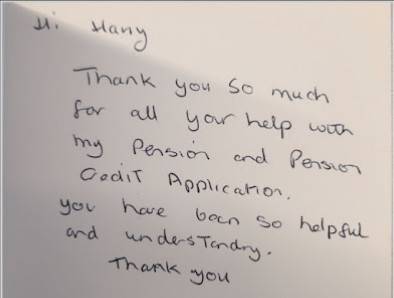 Hi Hany
Thank you so much
for all your help with
my Pension and Pension
Credit Application.
you have been so helpful
and understandry.
Thank you